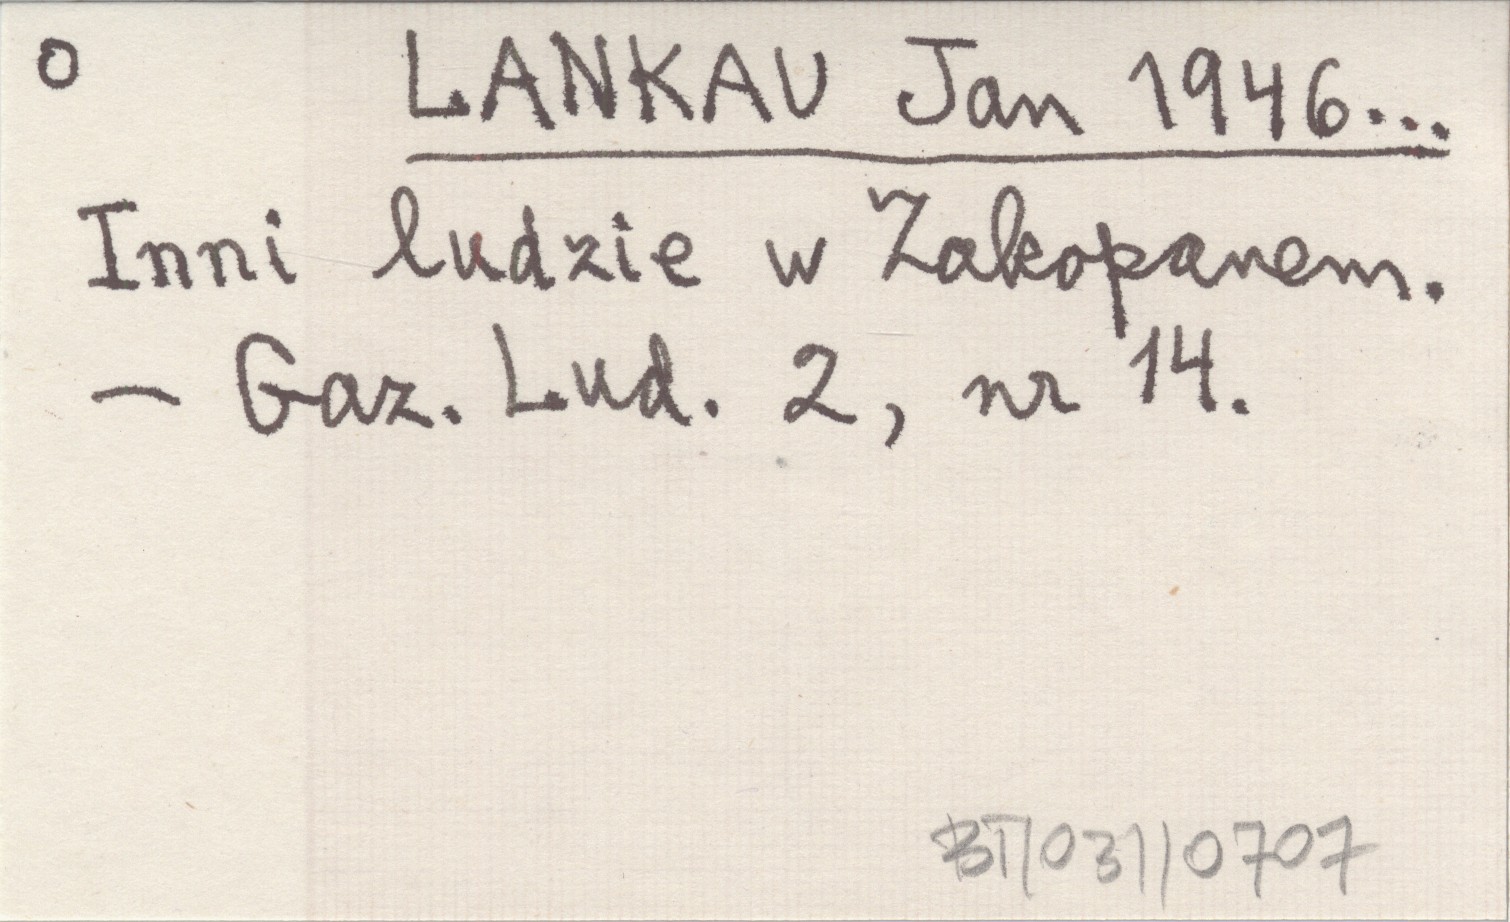 o LANKAU Jan 1946...
Inni ludzie w Zakopanem.
— Gaz. Lud. 2, nr 14.
BT/031/0707